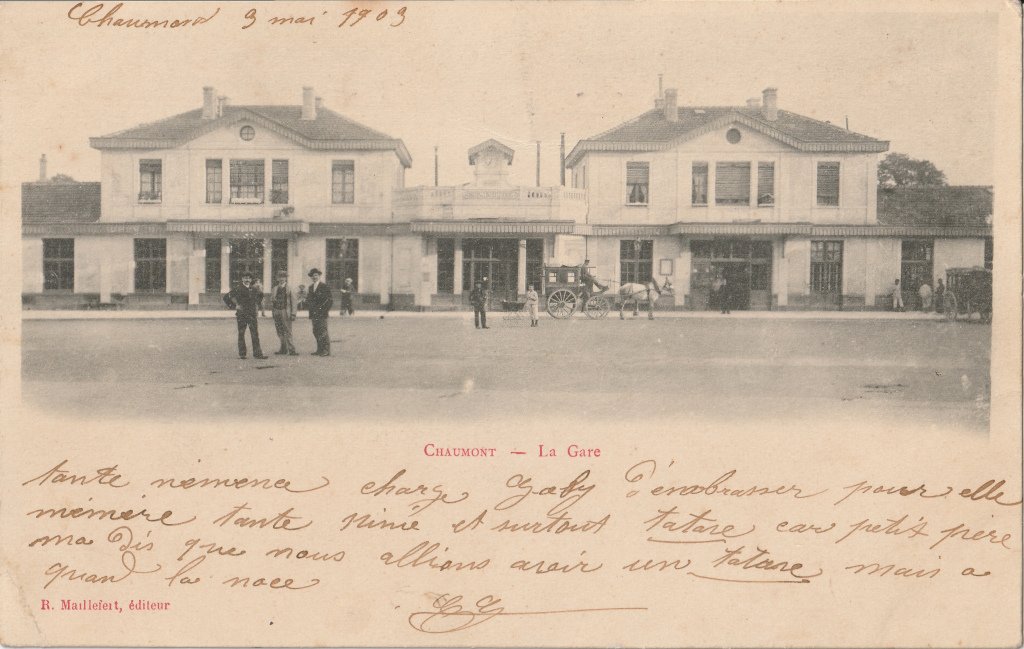 Chaumont 3 mai 1903
CHAUMONT — LA GARE
tante nemene charge Gaby d'enabrasser pour elle
mémère tante ninie et surtout tatase car petit père
ma dis que nous allions avoir un tatase mais a
quand la noce
R. Maillefert, éditeur